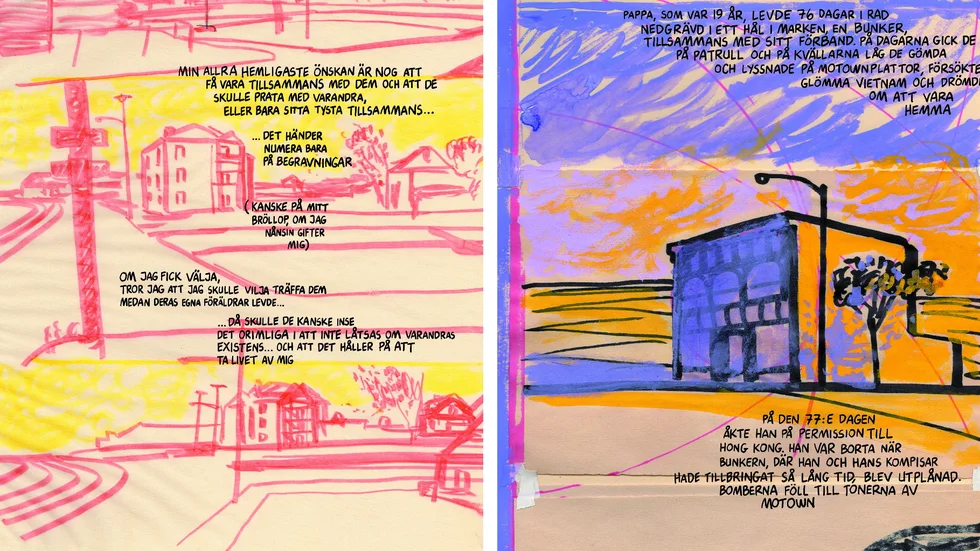 MIN ALLRA HEMLIGASTE ÖNSKAN ÄR NOG ATT
FÅ VARA TILLSAMMANS MED DEM OCH ATT DE
SKULLE PRATA MED VARANDRA,
ELLER BARA SITTA TYSTA TILLSAMMANS...
...DET HÄNDER
NUMERA BARA
PÅ BEGRAVNINGAR
(KANSKE PÅ MITT
BRÖLLOP, OM JAG
NÅNSIN GIFTER
MIG)
OM JAG FICK VÄLJA,
TROR JAG ATT JAG SKULLE VILJA TRÄFFA DEM
MEDAN DERAS EGNA FÖRÄLDRAR LEVDE...
...DÅ SKULLE DE KANSKE INSE
DET ORIMLIGA I ATT INTE LÅTSAS OM VARANDRAS
EXISTENS... OCH ATT DET HÅLLER PÅ ATT
TA LIVET AV MIG
PAPPA, SOM VAR 19 ÅR, LEVDE 76 DAGAR I RAD
NEDGRÄVD I ETT HÅL I MARKEN, EN BUNKER,
TILLSAMMANS MED SITT FÖRBAND. PÅ DAGARNA GICK DE
PÅ PATRULL OCH PÅ KVÄLLARNA LÅG DE GÖMDA
OCH LYSSNADE PÅ MOTOWNPLATTOR, FÖRSÖKTE
GLÖMMA VIETNAM OCH DRÖMDE
OM ATT VARA
HEMMA
PÅ DEN 77:E DAGEN
ÅKTE HAN PÅ PERMISSION TILL
HONG KONG. HAN VAR BORTA NÄR
BUNKERN, DÄR HAN OCH HANS KOMPISAR
HADE TILLBRINGAT SÅ LÅNG TID, BLEV UTPLÅNAD.
BOMBERNA FÖLL TILL TONERNA AV
MOTOWN